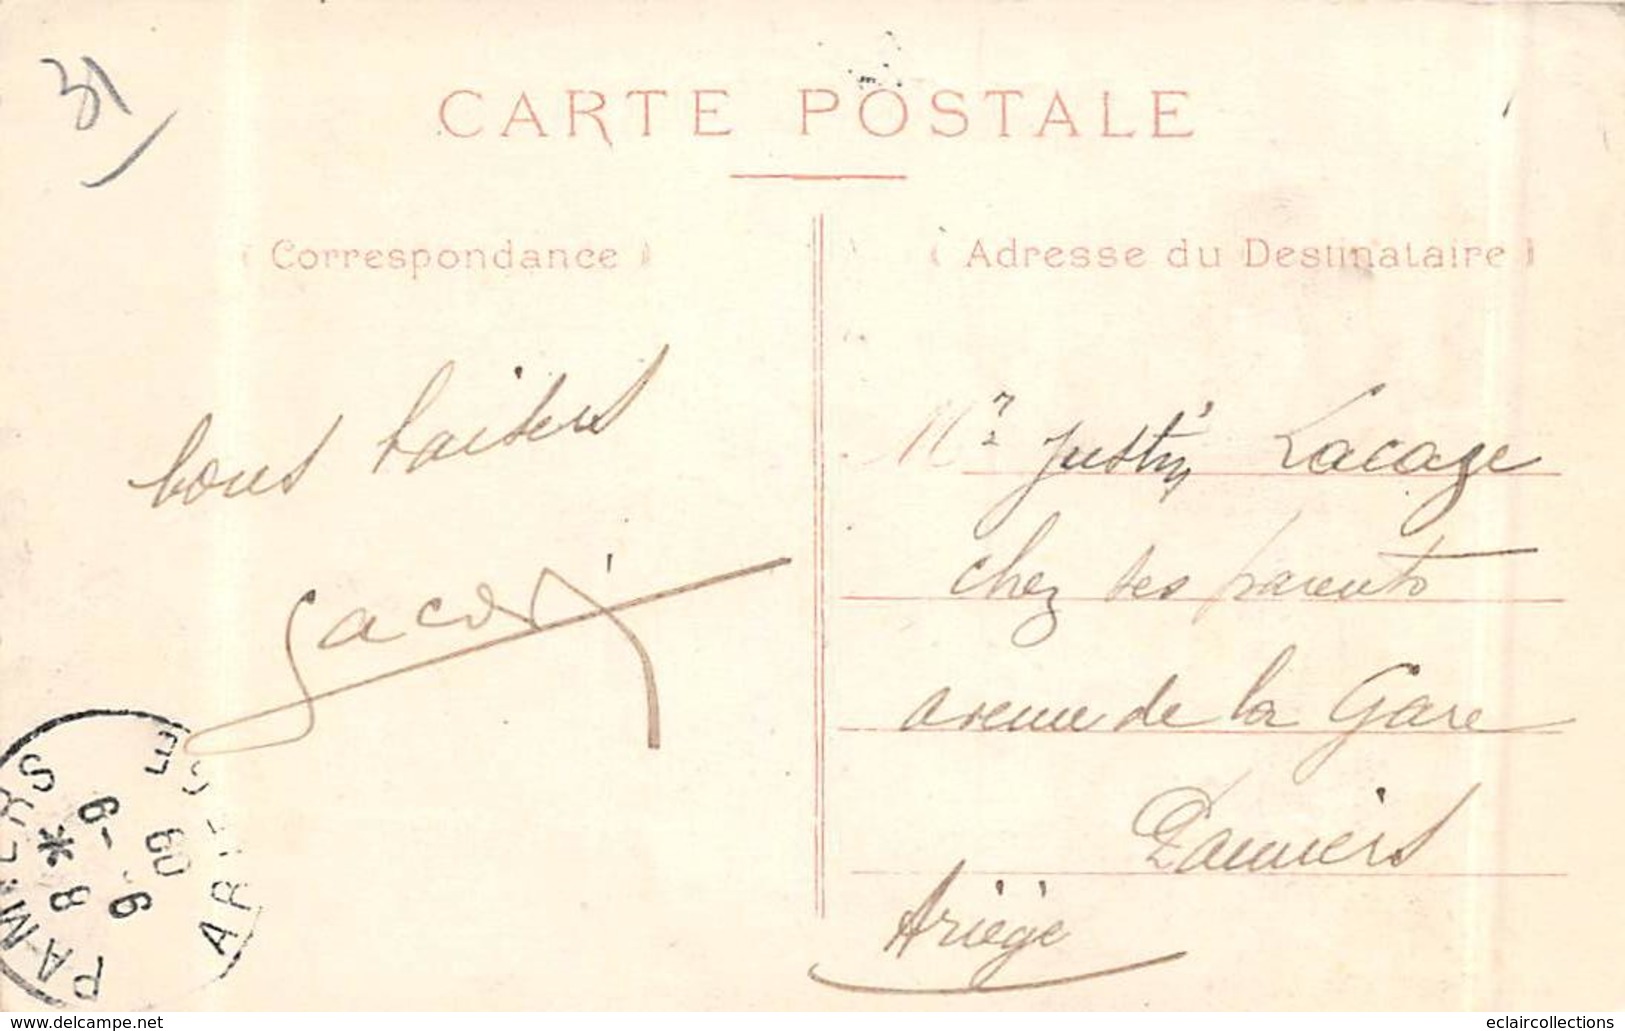 31
CARTE POSTALE
Correspondance
bons baisers
Adresse du Destinataire
Mr Justin Lacaze
chez ses parents
avenue de la Gare
Pamiers
Ariège
PAMIERS
ARIEGE
8 * 6-9
09
www.delcampe.net
eclaircollections